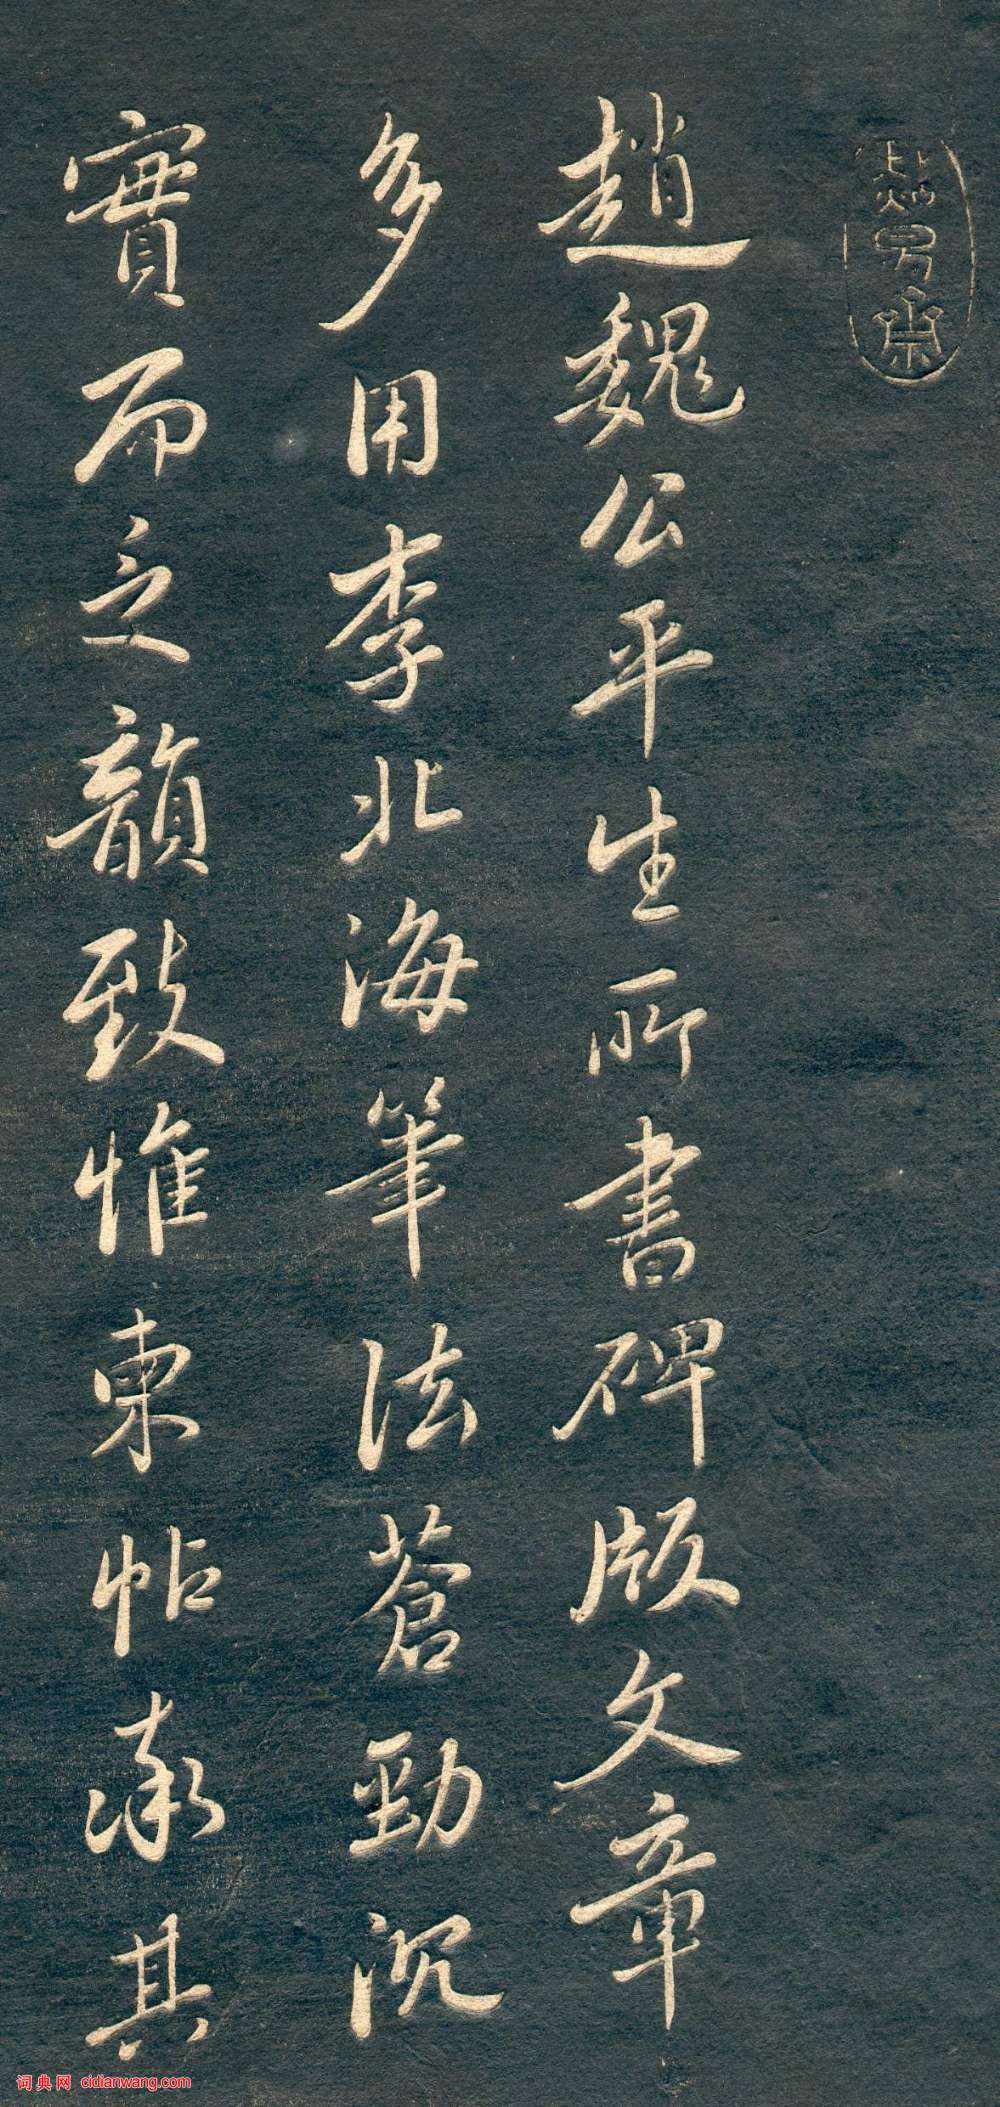 趙魏公平生所書碑版文章
多用李北海筆法蒼勁沉
實而乏韻致惟柬帖其
词典网 cidianwang.com